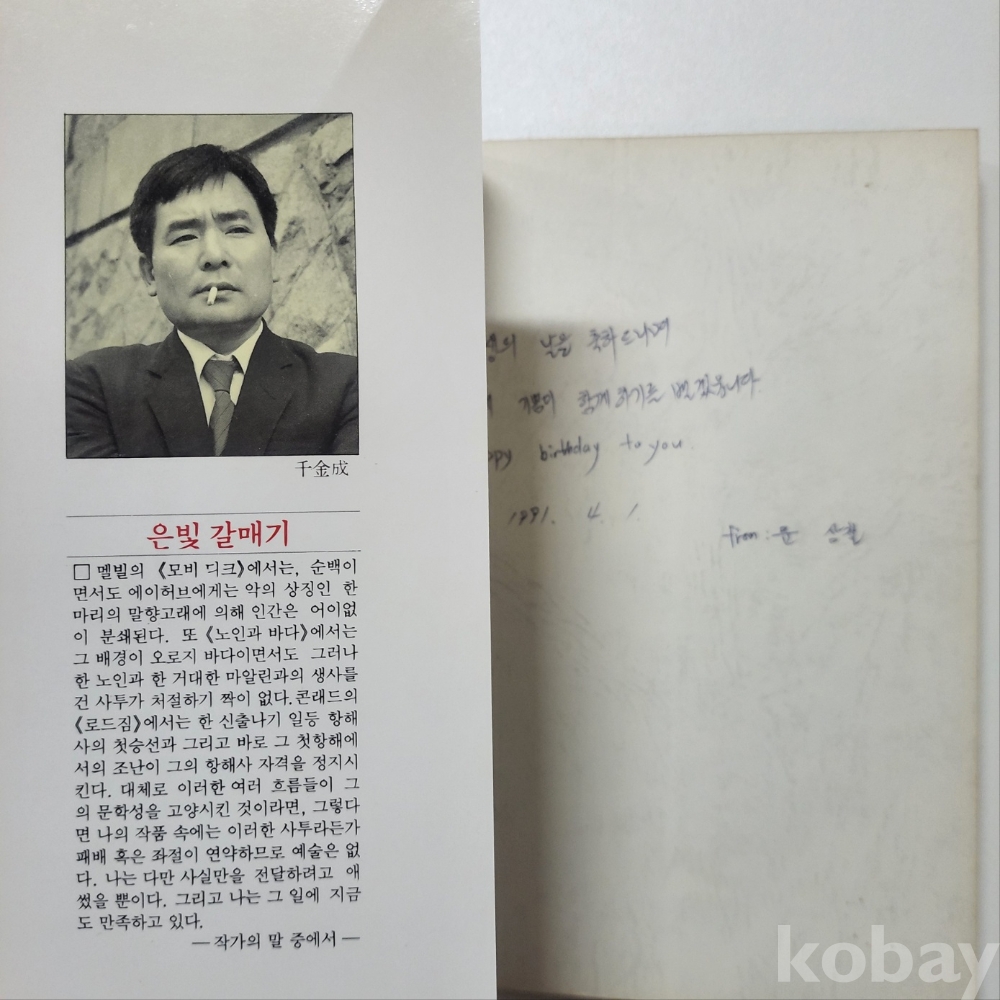 千金成
은빛 갈매기
□ 멜빌의 《모비 딕크》에서는, 순백이
면서도 에이허브에게는 악의 상징인 한
마리의 말향고래에 의해 인간은 어이없
이 분쇄된다. 또 《노인과 바다》에서는
그 배경이 오로지 바다이면서도 그러나
한 노인과 한 거대한 마알린과의 생사를
건 사투가 처절하기 짝이 없다. 콘래드의
《로드짐》에서는 한 신출나기 일등 항해
사의 첫승선과 그리고 바로 그 첫항해에
서의 조난이 그의 항해사 자격을 정지시
킨다. 대체로 이러한 여러 흐름들이 그
의 문학성을 고양시킨 것이라면, 그렇다
면 나의 작품 속에는 이러한 사투라든가
패배 혹은 좌절이 연약하므로 예술은 없
다. 나는 다만 사실만을 전달하려고 애
썼을 뿐이다. 그리고 나는 그 일에 지금
도 만족하고 있다.
—작가의 말 중에서—
날을 축하드리며
기쁨이 함께 하기를 빌겠읍니다
ppy birthday to you.
1991. 4. 1.
from: 문
kobay